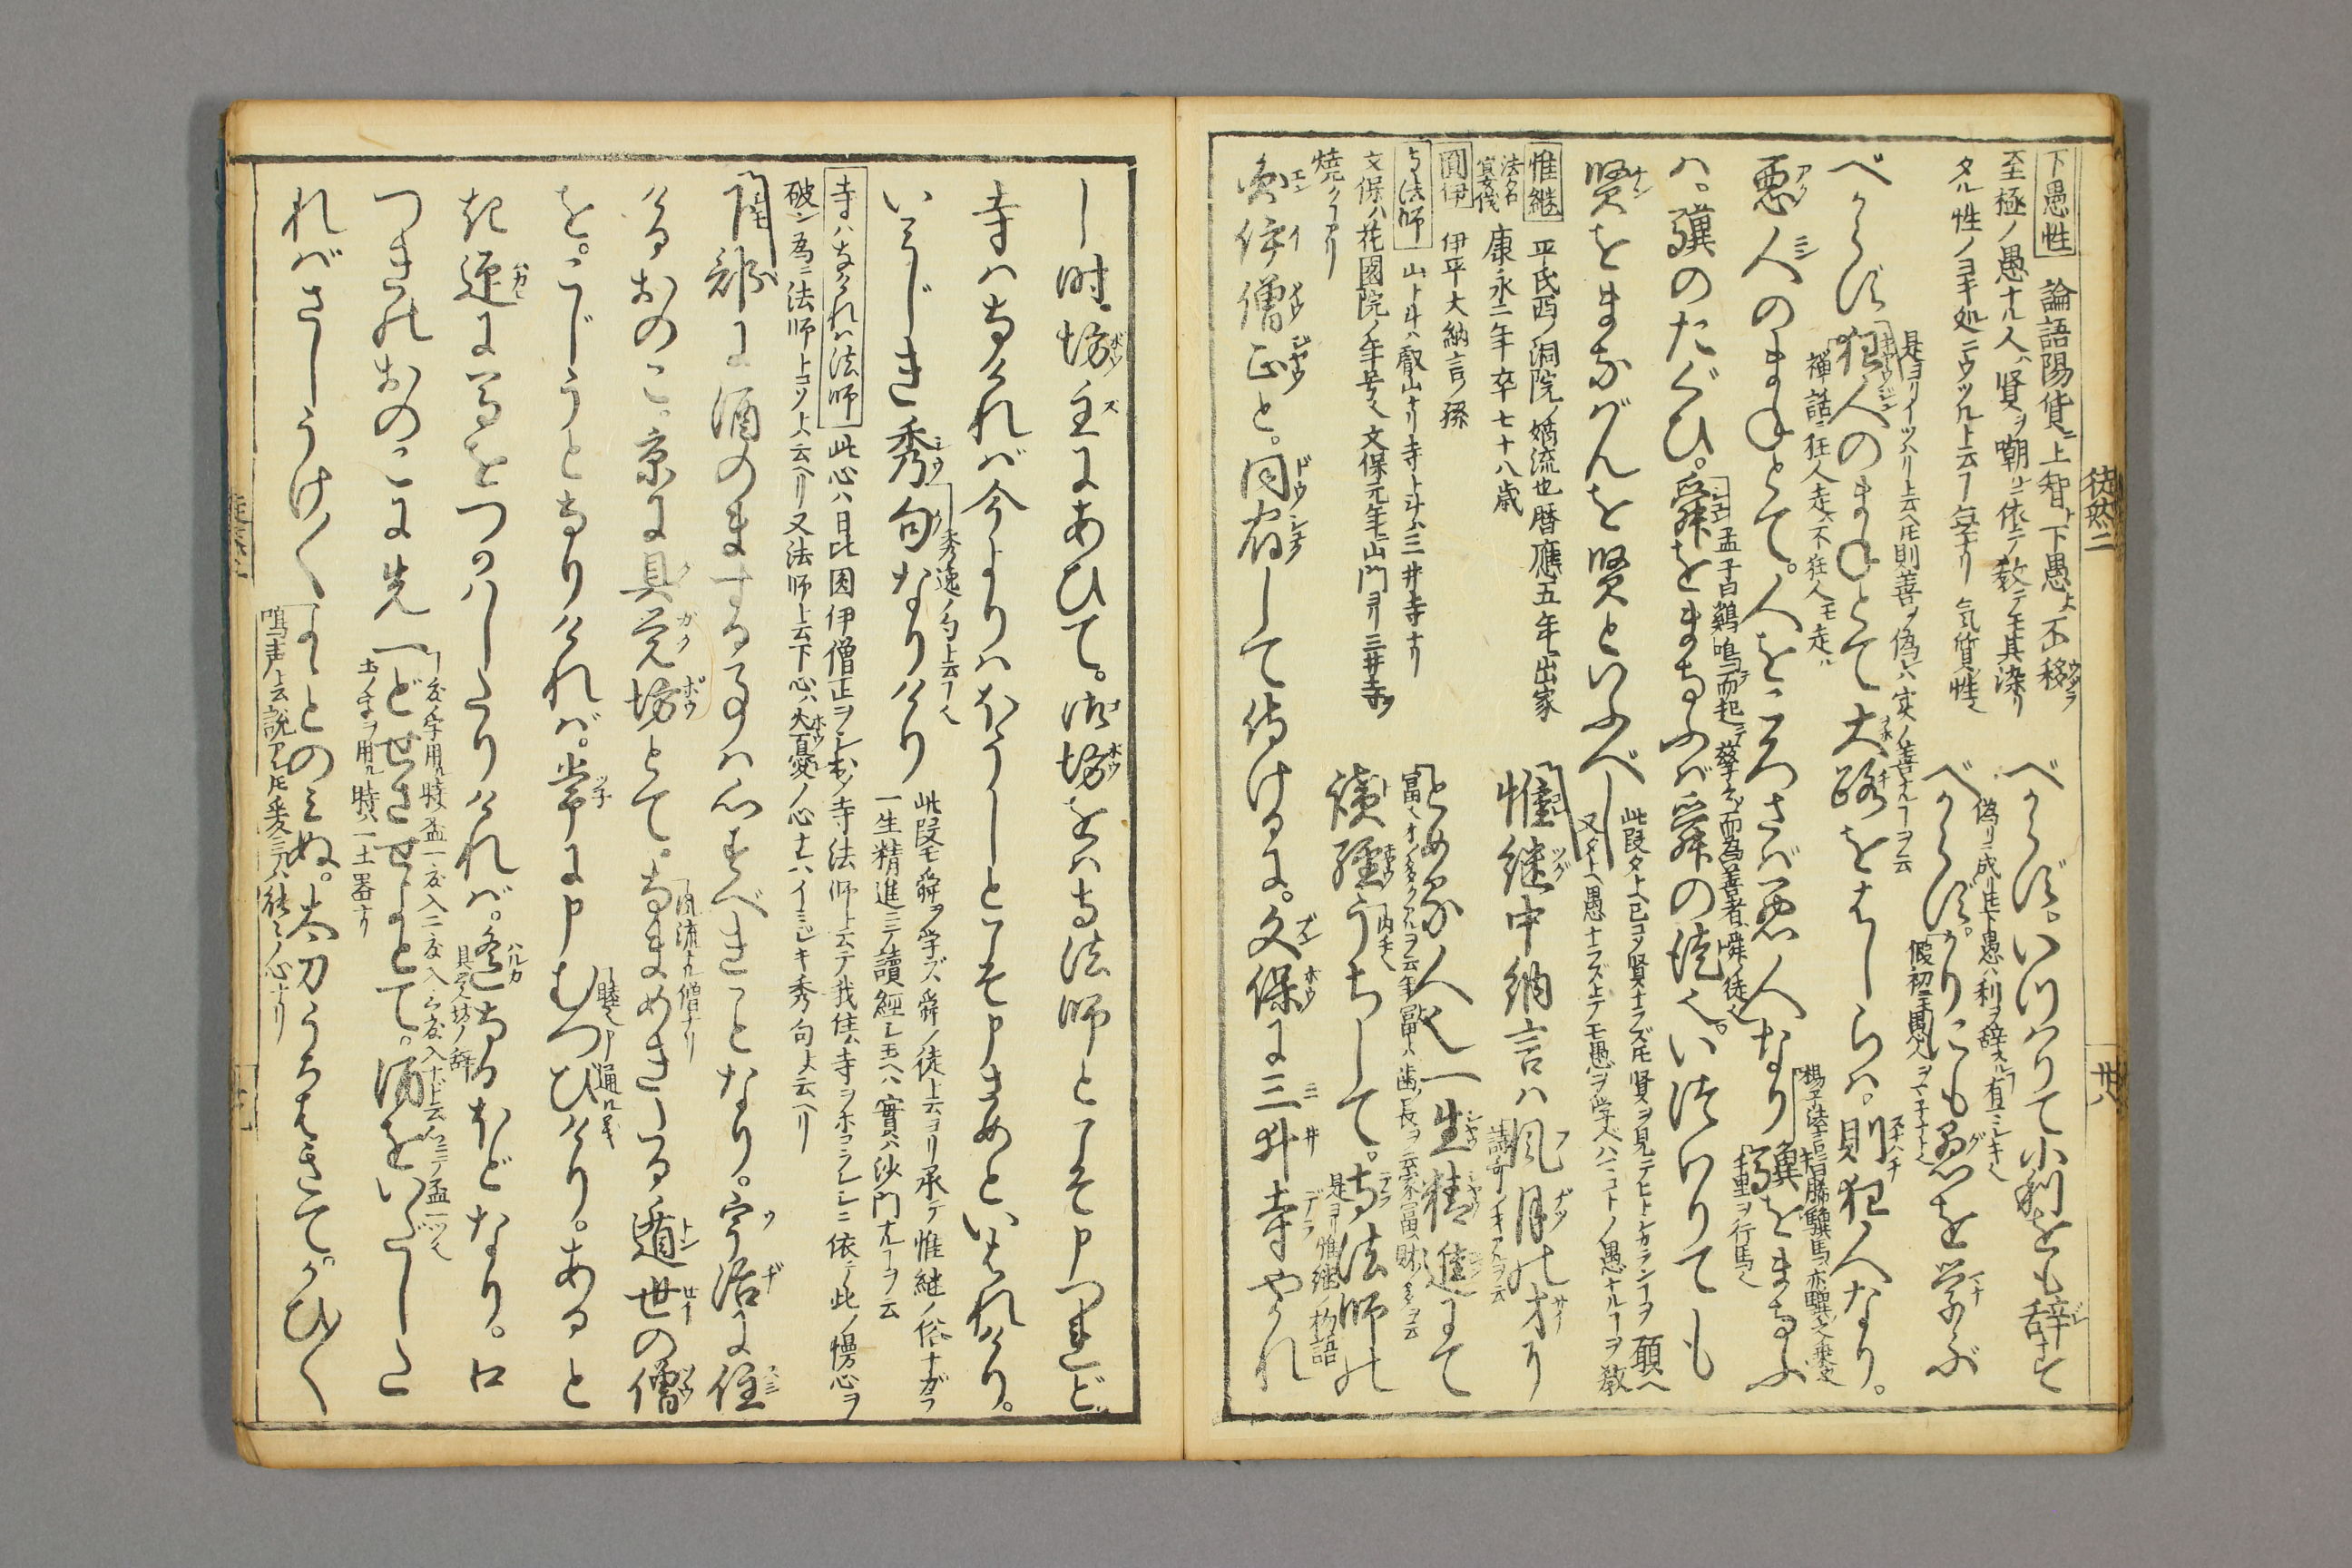 徒然二
廿八
下愚性 論語陽貨ニ上智ト下愚ト不移
至極ノ愚ナル人ハ賢ヲ嘲ルニ依テ教テモ其染リ
タル性ノヨキ処ニウツルト云フ無ナリ 気質ノ性也
べからず。いつはりて小利をも辞す
偽リニ成リ共下愚ハ利ヲ辞スル有ジキ也
べからず。かりにも愚を学ぶ
假初ニモ愚人ヲマ子ナト也
是ヨリイツハリト云ヘ共則善ヲ偽レハ実ノ善ナルフヲ云
べからず狂人のまねとて大路をはしらハ。則狂人なり。
禅話ニ狂人走ハ不狂人モ走ル
悪人のまねとて。人をころさば悪人なり驥をまなぶ
楊子法言曰睎驥之馬亦驥之乗也
千里ヲ行馬也
ハ。驥のたぐひ。舜をまなぶハ舜の徒也。いつはりても
孟子曰鶏鳴而起孳々而為善者舜ノ徒也
賢をまなばんを賢といふべし
此段タトヒコソ賢ナラズ共賢ヲ見テヒトシカランフヲ願ヘ
又タトヘ愚ナラズトテモ愚ヲ学ベハマコトノ愚ナルフヲ教
惟継 平氏西ノ洞院ノ嫡流也暦應五年出家
康永二年卒七十八歳
圓伊 伊平大納言ノ孫
寺法師 山ト斗ハ叡山ナリ寺ト斗ハ三井寺ナリ
文保ハ花園院ノ年号也文保元年山門ヨリ三井寺ヲ
焼クフアリ
惟継中納言ハ風月の才に
詩哥ノ才アルヲ云
とめる人也一生精進にて
讀経うちして。寺法師の
是ヨリ惟継ノ物語
圓伊僧正と。同宿して侍けるに。文保に三井寺やかれ
し時。坊主にあひて。御坊をハ寺法師とこそ申つれど
寺ハなければ今よりハほうしとこそ申さめといはれけり。
いみじき秀句なりけり
秀逸ノ句ト云フ也
此段モ舜ヲ学ズ舜ノ徒ト云ヨリ承テ惟継ノ俗ナガラ
一生精進ニテ讀經シ玉ヘハ實ハ沙門ナルフヲ云
寺ハなけれハ法師 此心ハ日比圓伊僧正ヲシ本ノ寺法師ト云テ我住ム寺ヲホコラレシニ依テ此ノ慢心ヲ
破ン為ニ法師トコソト云ヘリ又法師ト云下心ハ大憂ノ心ナレハイミジキ秀句ト云ヘリ
下部に酒のまする事ハ心すべきことなり。宇治に住
けるおのこ。京に具覚坊とて。なまめきたる遁世の僧
風流ナル僧ナリ
を。こじうとなりければ。常に申むつびけり。あると
睦也申通ル義
き迎に馬をつかはしたりければ。遙なるほどなり。口
具覚坊ノ辞
つきのおのこに先一どせさせよとて。酒をいだした
土ノ字ヲ用ル時ハ一土器ナリ
ればさしうけ〳〵よゝとのみぬ。太刀うちはきてかひ〳〵